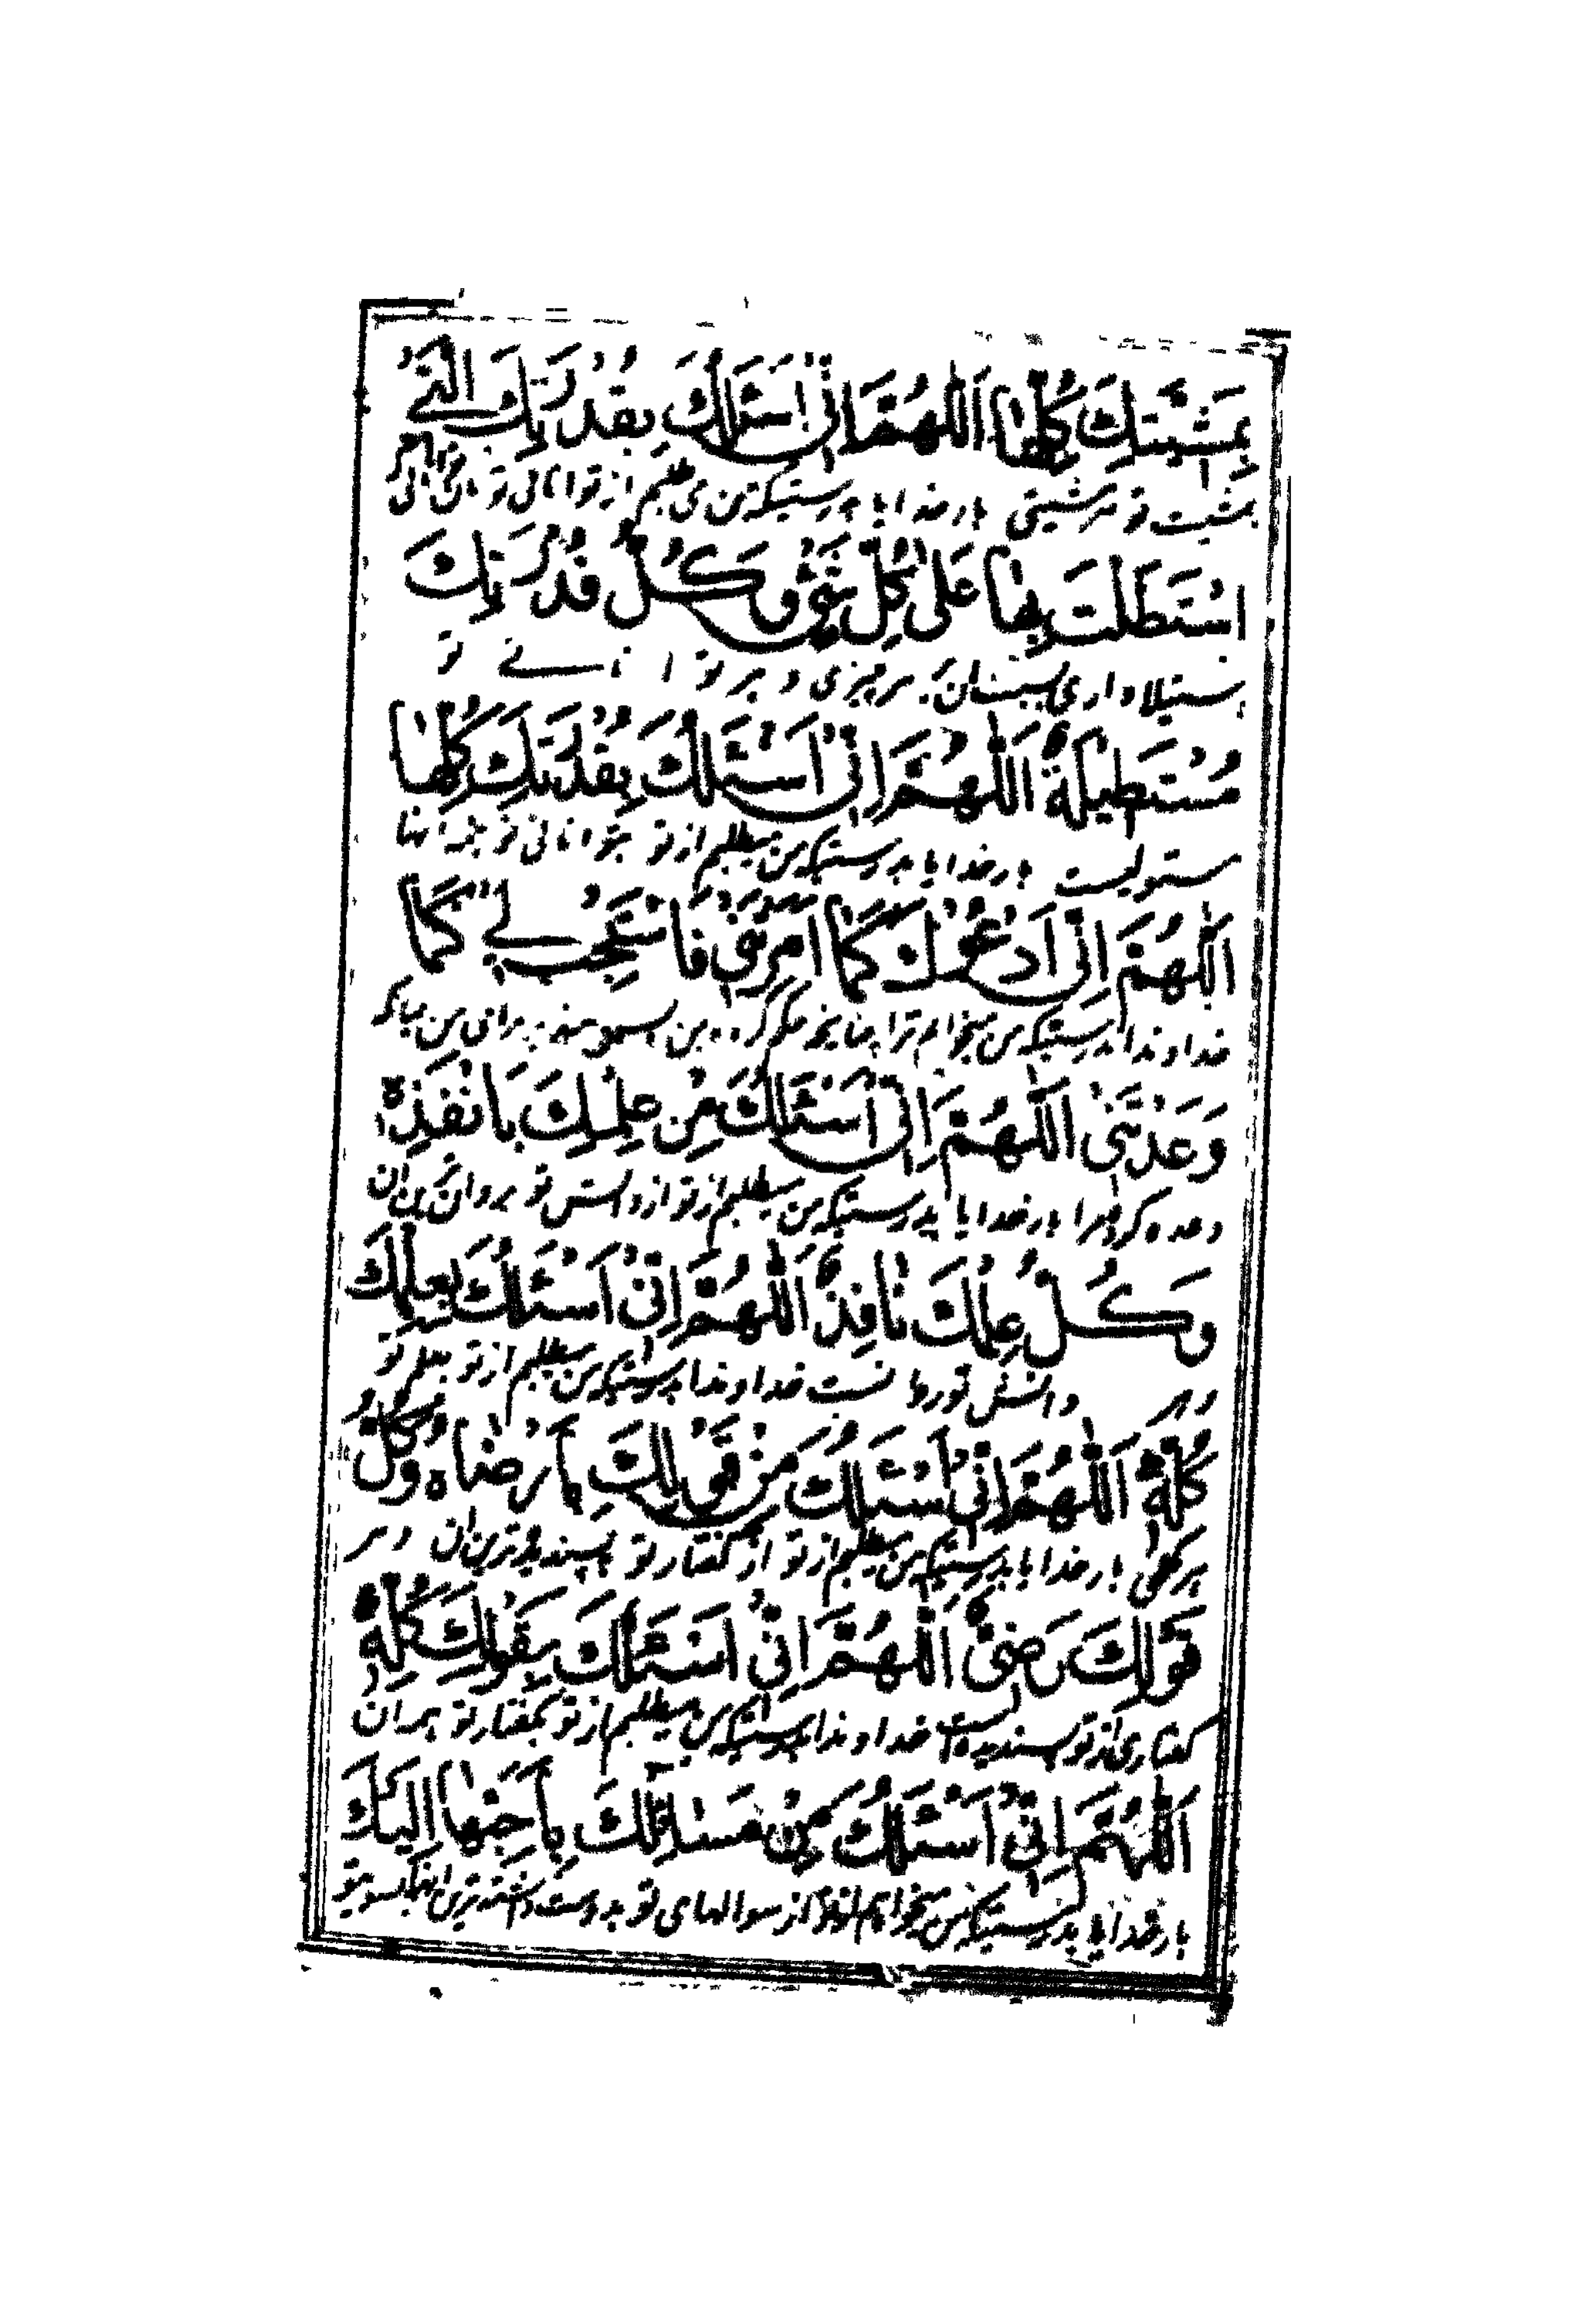 بِمَشِيَّتِكَ كُلِّهَا اَللّٰهُمَّ اِنّىٖ اَسْئَلُكَ بِقُدْرَتِكَ الَّتىٖ
بمشیت تو هر مشیتی بار خدایا بدرستیکه من می طلبم از توانائی تو
اسْتَطَلْتَ بِهَا عَلىٰ كُلِّ شَىْءٍ وَكُلُّ قُدْرَتِكَ
استیلا داری بسبب آن بر هر چیزی و هر توانائے تو
مُسْتَطٖيلَةٌ اَللّٰهُمَّ اِنّىٖ اَسْئَلُكَ بِقُدْرَتِكَ كُلِّهَا
مستولیست بار خدایا بدرستیکه من میطلبم از تو بتوانائی تو همه آنها
اَللّٰهُمَّ اِنّىٖ اَدْعُوْكَ كَمَا اَمَرْتَنىٖ فَاسْتَجِبْ لىٖ كَمَا
خداوندا بدرستیکه من میخوانم ترا چنانچه برای من
وَعَدْتَنىٖ اَللّٰهُمَّ اِنّىٖ اَسْئَلُكَ مِنْ عِلْمِكَ بِاَنْفَذِهٖ
وعده کردی مرا بار خدایا بدرستیکه من میطلبم از تو از دانش تو بروان ترین آن
وَكُلُّ عِلْمِكَ نَافِذٌ اَللّٰهُمَّ اِنّىٖ اَسْئَلُكَ بِعِلْمِكَ
و هر دانش تو خداوندا بدرستیکه من میطلبم از تو بعلم تو
كُلِّهٖ اَللّٰهُمَّ اِنّىٖ اَسْئَلُكَ مِنْ قَوْلِكَ بِاَرْضَاهُ وَكُلُّ
بار خدایا بدرستیکه من میطلبم از تو از گفتار تو پسندیده ترین آن و هر
قَوْلِكَ رَضِىٌّ اَللّٰهُمَّ اِنّىٖ اَسْئَلُكَ بِقَوْلِكَ كُلِّهٖ
گفتاری از تو پسندیده است خداوندا بدرستیکه من میطلبم از تو بگفتار تو همه آن
اَللّٰهُمَّ اِنّىٖ اَسْئَلُكَ مِنْ مَسَائِلِكَ بِاَحَبِّهَا اِلَيْكَ
بار خدایا بدرستیکه من میخواهم از تو از سوالهای تو بدوست داشته ترین آنها بسوی تو